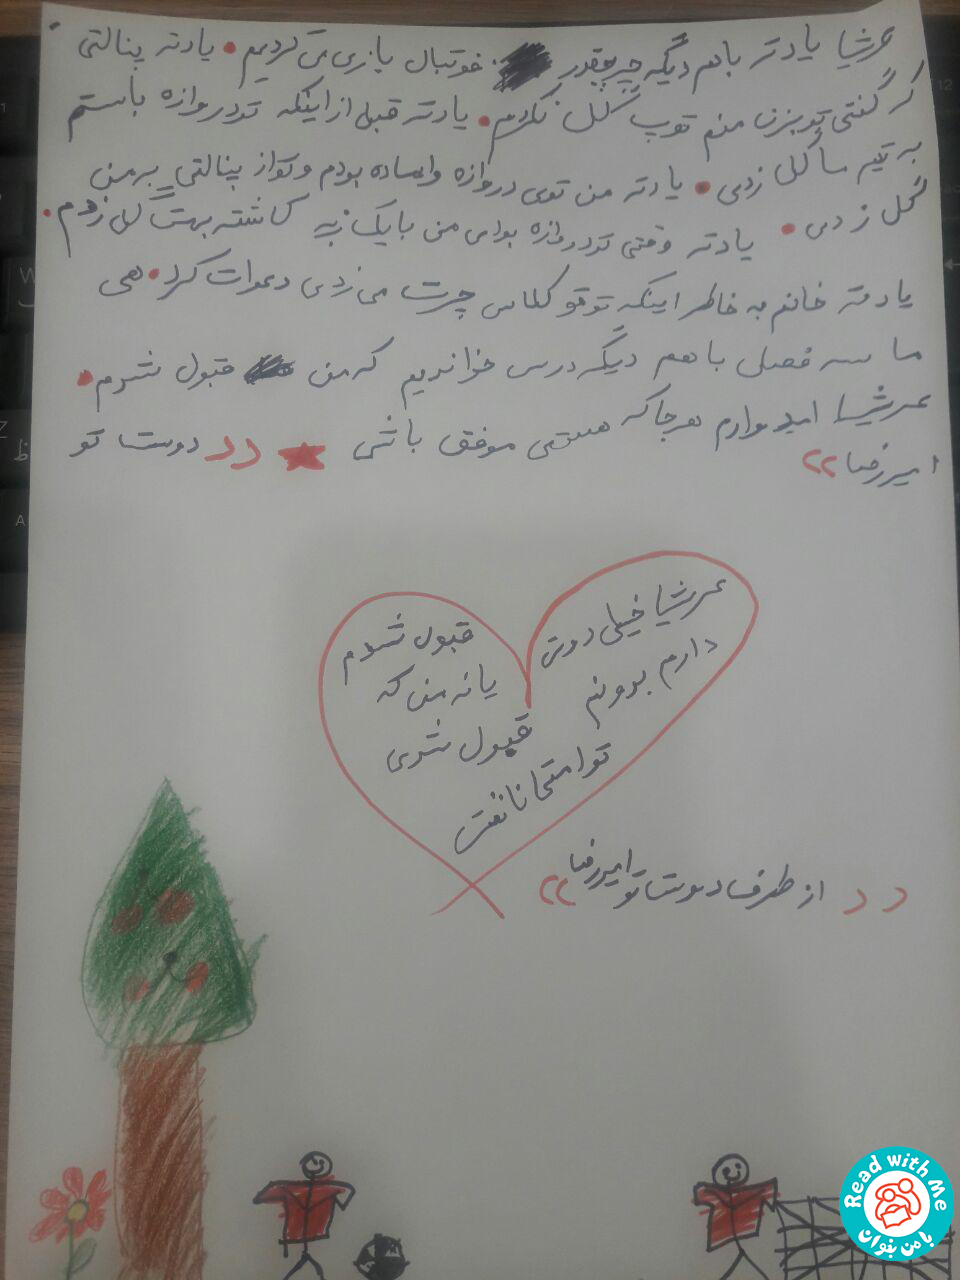 عرشیا یادته باهم دیگه چقدر فوتبال بازی می کردیم. یادته پنالتی
گفتی تو بزن منم توپ گل نکردم. یادته قبل از اینکه تو دروازه باستم
به تیم ما گل زدی. یادته من توی دروازه وایساده بودم و تو از پنالتی به من
گل زدی. یادته وقتی تو دروازه بودی من با یک ضربه کاشته بهت گل زدم.
یادته خانم به خاطر اینکه تو تو کلاس چرت می زدی دعوات کرد. هی
ما سه فصلی با هم دیگه درس خواندیم که من قبول شدم.
عرشیا امیدوارم هرجا که هستی موفق باشی «دوست تو
امیررضا»
عرشیا خیلی دوست
دارم بدونم
تو امتحانانت
قبول شدی
یا نه من که
قبول شدم
«از طرف دوست تو امیررضا»
Read with Me
با من بخوان